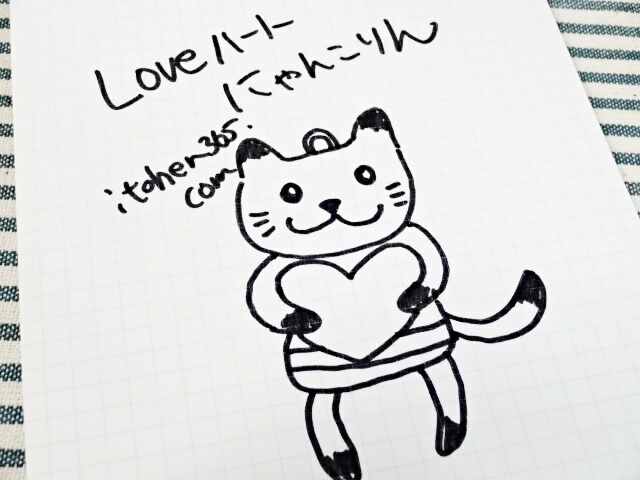 Loveハート
にゃんこりん
itohen365.
com